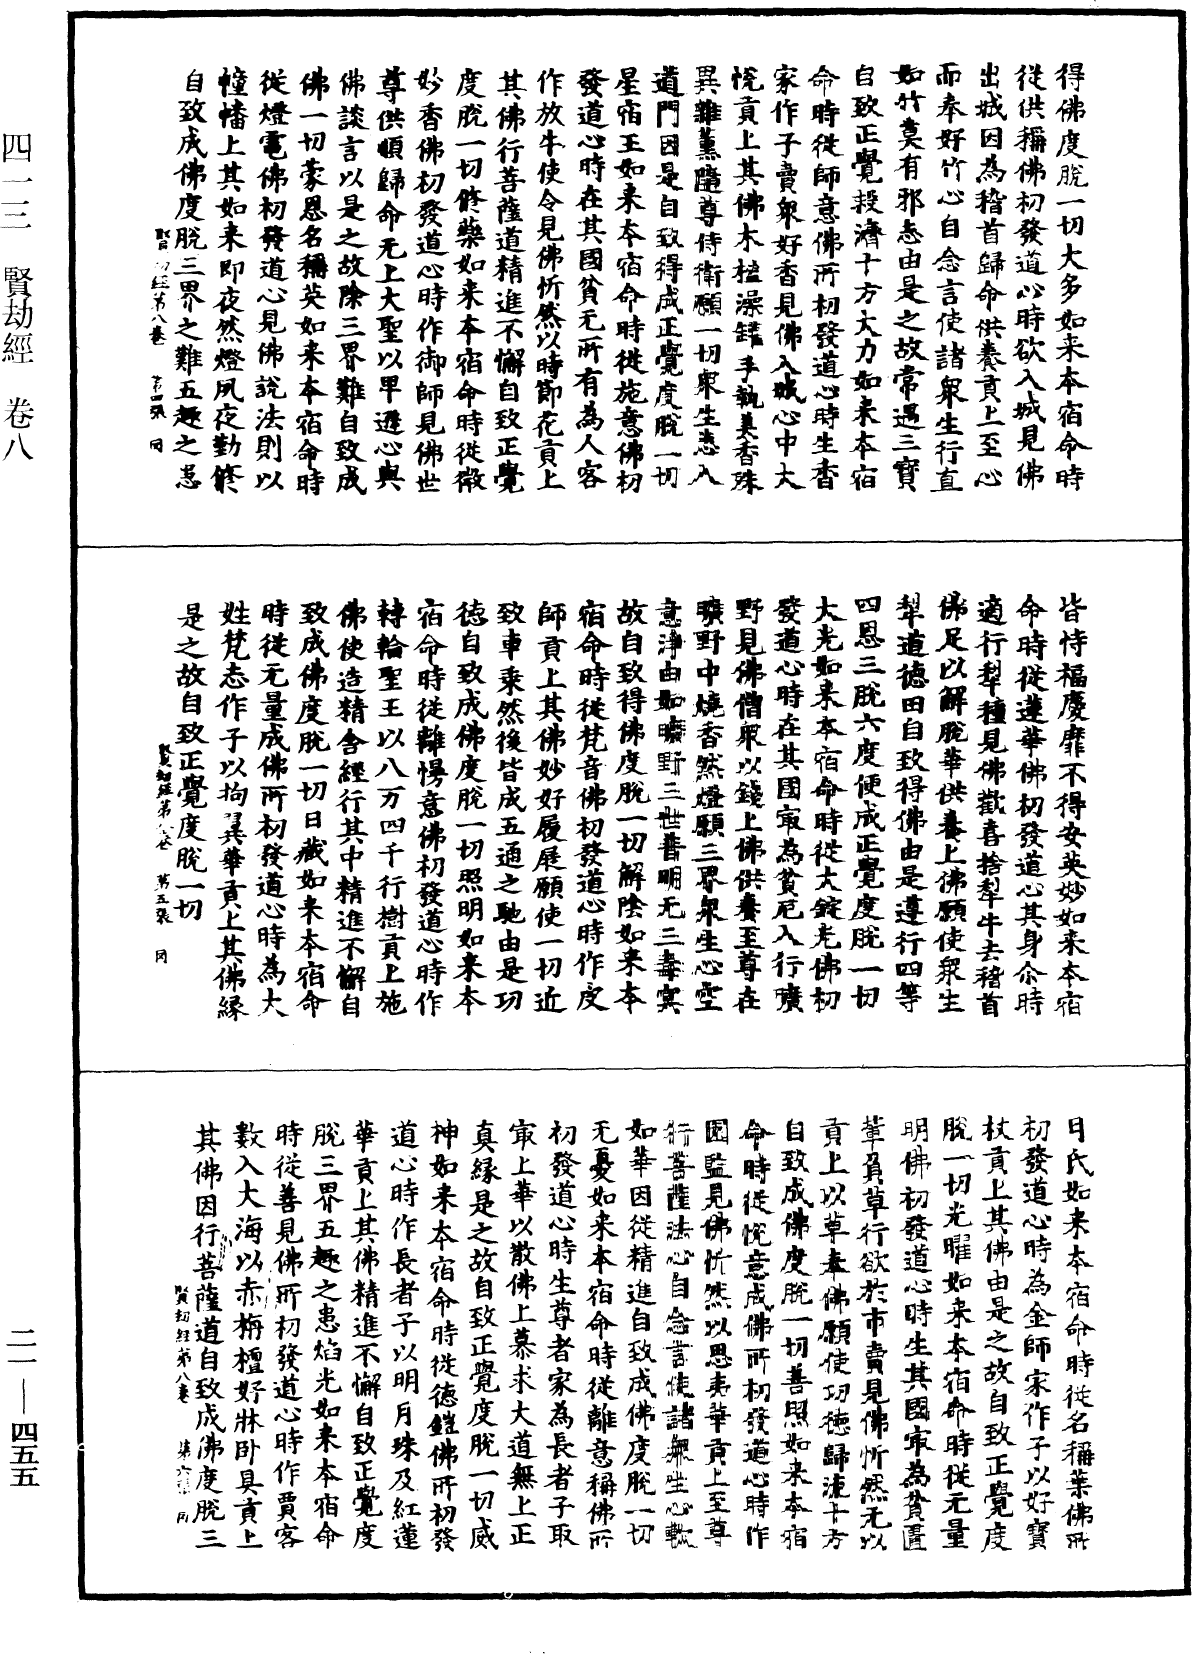 四一三　賢劫經　卷八
二一—四五五
得佛度脫一切大多如来本宿命時
從供稱佛初發道心時欲入城見佛
出城因為稽首歸命供養貢上至心
而奉好竹心自念言使諸衆生行直
如竹莫有邪志由是之故常遇三寶
自致正覺投濟十方大力如来本宿
命時從師意佛所初發道心時生香
家作子賣衆好香見佛入城心中大
悅貢上其佛木櫨澡鑵手執美香殊
異雜薰隨尊侍衛願一切衆生志入
道門因是自致得成正覺度脫一切
星宿王如来本宿命時從施意佛初
發道心時在其國貧无所有為人客
作放牛使令見佛忻然以時節花貢上
其佛行菩薩道精進不懈自致正覺
度脫一切修藥如来本宿命時從微
妙香佛初發道心時作御師見佛世
尊供順歸命无上大聖以卑遜心與
佛談言以是之故除三界難自致成
佛一切蒙恩名稱英如来本宿命時
從燈電佛初發道心見佛說法則以
幢幡上其如来即夜然燈夙夜勤修
自致成佛度脫三界之難五趣之患
賢劫經第八卷　第四張　同
皆恃福慶靡不得安英妙如来本宿
命時從蓮華佛初發道心其身尒時
適行犁種見佛歡喜捨犁牛去稽首
佛足以解脫華供養上佛願使衆生
犁道德田自致得佛由是遵行四等
四恩三脫六度便成正覺度脫一切
大光如来本宿命時從大錠光佛初
發道心時在其國㝡為貧厄入行曠
野見佛僧衆以錢上佛供養至尊在
曠野中燒香然燈願三界衆生心空
意淨由如曠野三世普明无三毒冥
故自致得佛度脫一切解陰如来本
宿命時從梵音佛初發道心時作皮
師貢上其佛妙好履屣願使一切近
致車乘然後皆成五通之馳由是功
德自致成佛度脫一切照明如来本
宿命時從離慢意佛初發道心時作
轉輪聖王以八万四千行樹貢上施
佛使造精舍經行其中精進不懈自
致成佛度脫一切日藏如来本宿命
時從无量成佛所初發道心時為大
姓梵志作子以拘翼華貢上其佛緣
是之故自致正覺度脫一切
賢劫經第八卷　第五張　同
月氏如来本宿命時從名稱葉佛所
初發道心時為金師家作子以好寶
杖貢上其佛由是之故自致正覺度
脫一切光曜如来本宿命時從无量
明佛初發道心時生其國㝡為貧匱
輦負草行欲於市賣見佛忻然无以
貢上以草奉佛願使功德歸流十方
自致成佛度脫一切善照如来本宿
命時從悅意成佛所初發道心時作
園監見佛忻然以思夷華貢上至尊
行菩薩法心自念言使諸衆生心軟
如華因從精進自致成佛度脫一切
无憂如来本宿命時從離意稱佛所
初發道心時生尊者家為長者子取
㝡上華以散佛上慕求大道無上正
真緣是之故自致正覺度脫一切威
神如来本宿命時從德鎧佛所初發
道心時作長者子以明月珠及紅蓮
華貢上其佛精進不懈自致正覺度
脫三界五趣之患焰光如来本宿命
時從善見佛所初發道心時作賈客
數入大海以赤栴檀好牀臥具貢上
其佛因行菩薩道自致成佛度脫三
賢劫經第八卷　第六張　同